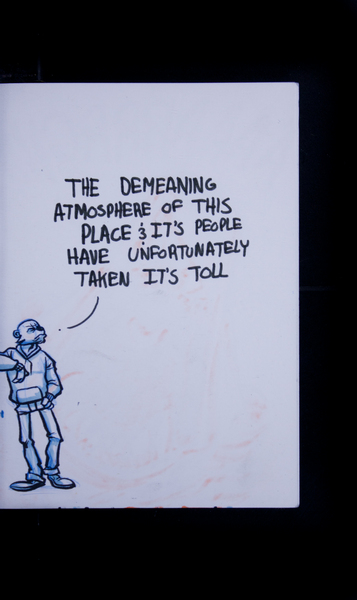 THE DEMEANING
ATMOSPHERE OF THIS
PLACE & IT'S PEOPLE
HAVE UNFORTUNATELY
TAKEN IT'S TOLL